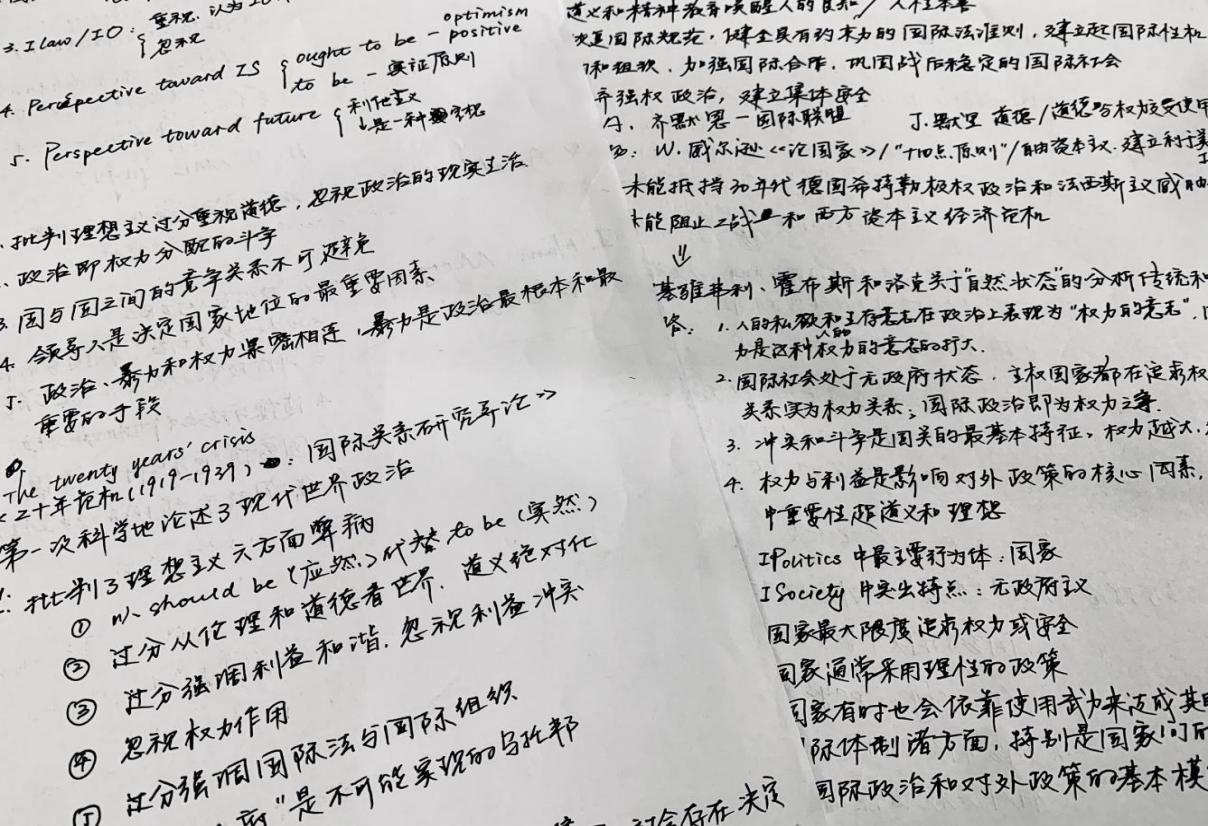 3. Ilaw/IO: { 重视. 认为
忽视
4. Perspective toward IS { ought to be - positive optimism
to be - 实证原则
5. Perspective toward future { 利他主义
是一种
批判理想主义过分重视道德, 忽视政治的现实生活
政治即权力分配的斗争
3 国与国之间的竞争关系不可避免
4. 领导人是决定国家地位的最重要因素
5. 政治、暴力和权力紧密相连, 暴力是政治最根本和最
重要的手段
The twenty years' crisis
《二十年危机(1919-1939): 国际关系研究导论》
第一次科学地论述了现代世界政治
批判了理想主义六方面弊病
① 以 should be (应然) 代替 to be (实然)
② 过分从伦理和道德看世界. 道义绝对化
③ 过分强调利益和谐. 忽视利益冲突
④ 忽视权力作用
⑤ 过分强调国际法与国际组织
"是不可能实现的乌托邦
道义和精神教育唤醒人的良知/人性本善
国际规范, 健全具有约束力的国际法准则, 建立起国际性机
和组织, 加强国际合作, 巩固战后稳定的国际社会
弃强权政治, 建立集体安全
A. 齐默恩-国际联盟 J. 默里 道德/道德与权力
W. 威尔逊《论国家》/"十四点原则"/自由资本主义. 建立利于美
未能抵挡30年代德国希特勒极权政治和法西斯主义威胁
未能阻止二战 和西方资本主义经济危机
⇓
基雅弗利、霍布斯和洛克关于"自然状态"的分析传统和
答: 1. 人的私欲和生存意志在政治上表现为"权力的意志",
力是这种人的权力的意志的扩大.
2. 国际社会处于无政府状态, 主权国家都在追求权
关系实为权力关系; 国际政治即为权力之争.
3. 冲突和斗争是国关的最基本特征, 权力越大,
4. 权力与利益是影响对外政策的核心因素,
中重要性超道义和理想
IPolitics 中最主要行为体: 国家
ISociety 中突出特点: 无政府主义
国家最大限度追求权力或安全
国家通常采用理性的政策
国家有时也会依靠使用武力来达成其目
际体制诸方面, 特别是国家间的
国际政治和对外政策的基本模
社会存在决定